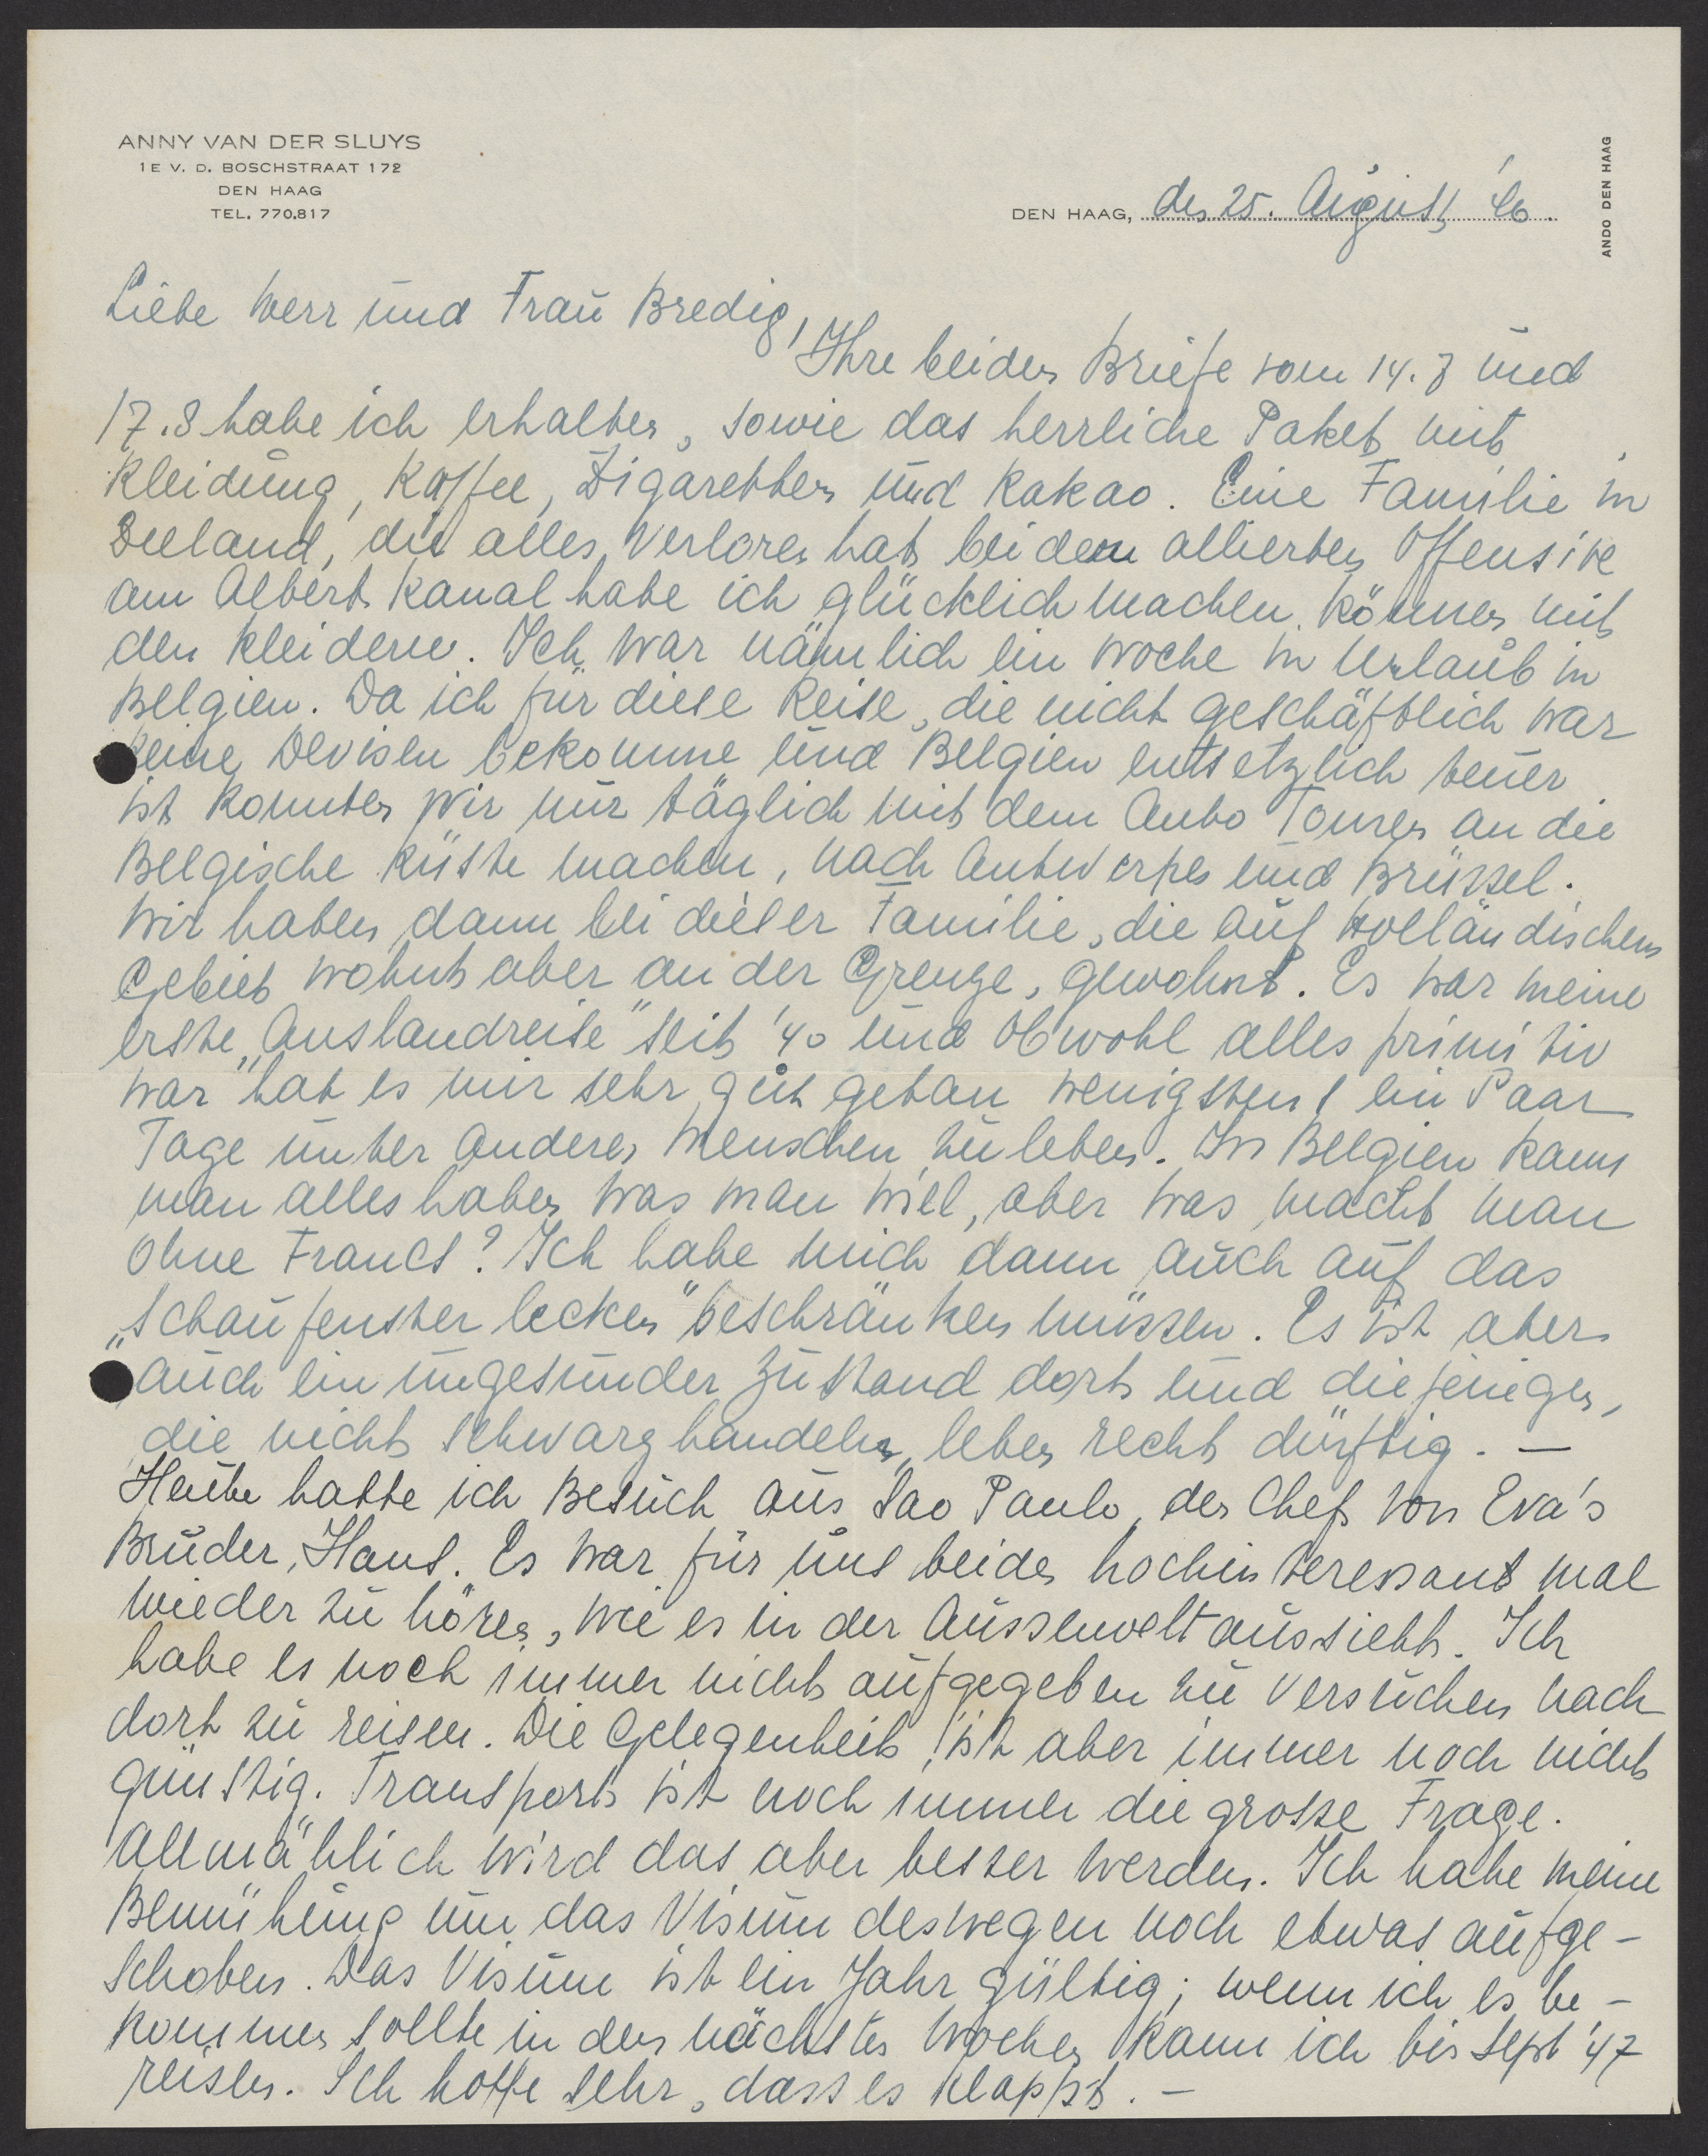 ANNY VAN DER SLUYS
1E V. D. BOSCHSTRAAT 172
DEN HAAG
TEL. 770.817
DEN HAAG, den 25. August '46.
ANDO DEN HAAG
Liebe Herr und Frau Bredig,
Ihre beiden Briefe vom 14.7 und
17.8 habe ich erhalten, sowie das herrliche Paket mit
Kleidung, Kaffee, Zigaretten und Kakao. Eine Familie in
Seeland, die alles verloren hat bei dem allierten Offensive
am Albert Kanal habe ich glücklich machen können mit
den Kleidern. Ich war nämlich ein Woche in Urlaub in
Belgien. Da ich für diese Reise, die nicht geschäftlich war
keine Devisen bekomme und Belgien entsetzlich teuer
ist konnten wir nur täglich mit dem Auto Touren an die
Belgische Küste machen, nach Antwerpen und Brüssel.
Wir haben dann bei dieser Familie, die auf Holländischem
Gebiet wohnt aber an der Grenze, gewohnt. Es war meine
erste „Auslandreise" seit '40 und obwohl alles primitiv
war hat es mir sehr gut getan wenigstens ein Paar
Tage unter anderen Menschen zu leben. In Belgien kann
man alles haben was man wiel, aber was macht man
ohne Francs? Ich habe mich dann auch auf das
„Schaufenster lecken" beschränken müssen. Es ist aber
auch ein ungesunder Zustand dort und diejenigen,
die nicht schwarz handeln, leben recht dürftig. —
Heute hatte ich Besuch aus Sao Paulo, der Chef von Eva's
Bruder, Hans. Es war für uns beiden hochinteressant mal
wieder zu hören, wie es in der Aussenwelt aussieht. Ich
habe es noch immer nicht aufgegeben zu versuchen nach
dort zu reisen. Die Gelegenheit ist aber immer noch nicht
günstig. Transport ist noch immer die grosse Frage.
Allmählich wird das aber besser werden. Ich habe meine
Bemühung um das Visum deswegen noch etwas aufge-
schoben. Das Visum ist ein Jahr gültig; wenn ich es be-
kommen sollte in den nächsten Wochen kann ich bis Sept '47
reisen. Ich hoffe sehr, dass es klappt. —